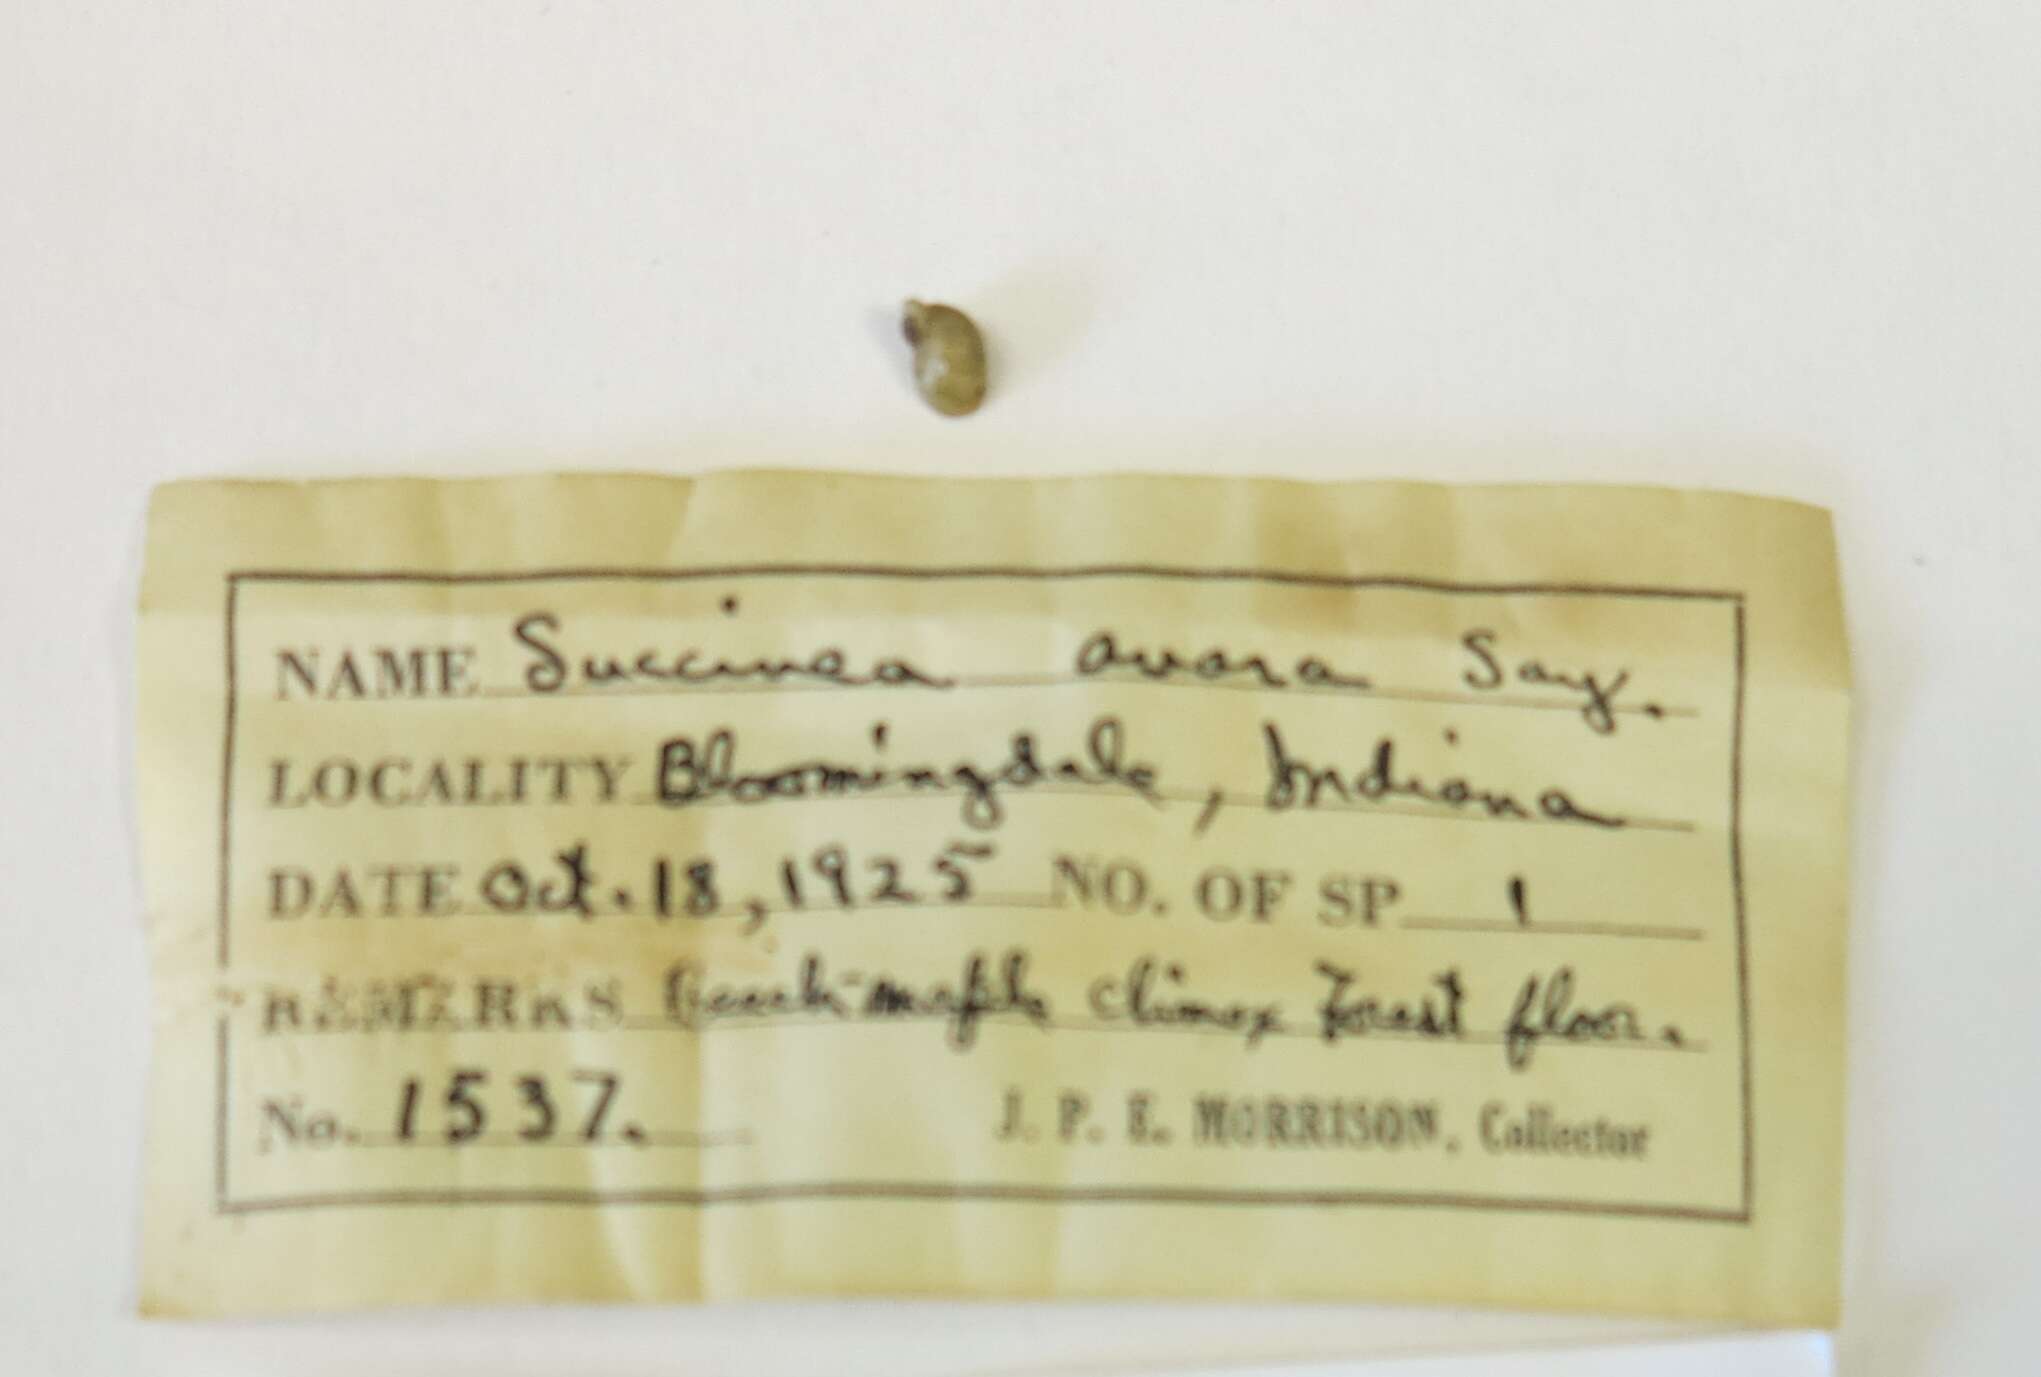 NAME Succinea avara Say.
LOCALITY Bloomingdale, Indiana
DATE Oct. 18, 1925 NO. OF SP 1
REMARKS Beech-maple climax forest floor.
No. 1537. J. P. E. MORRISON, Collector